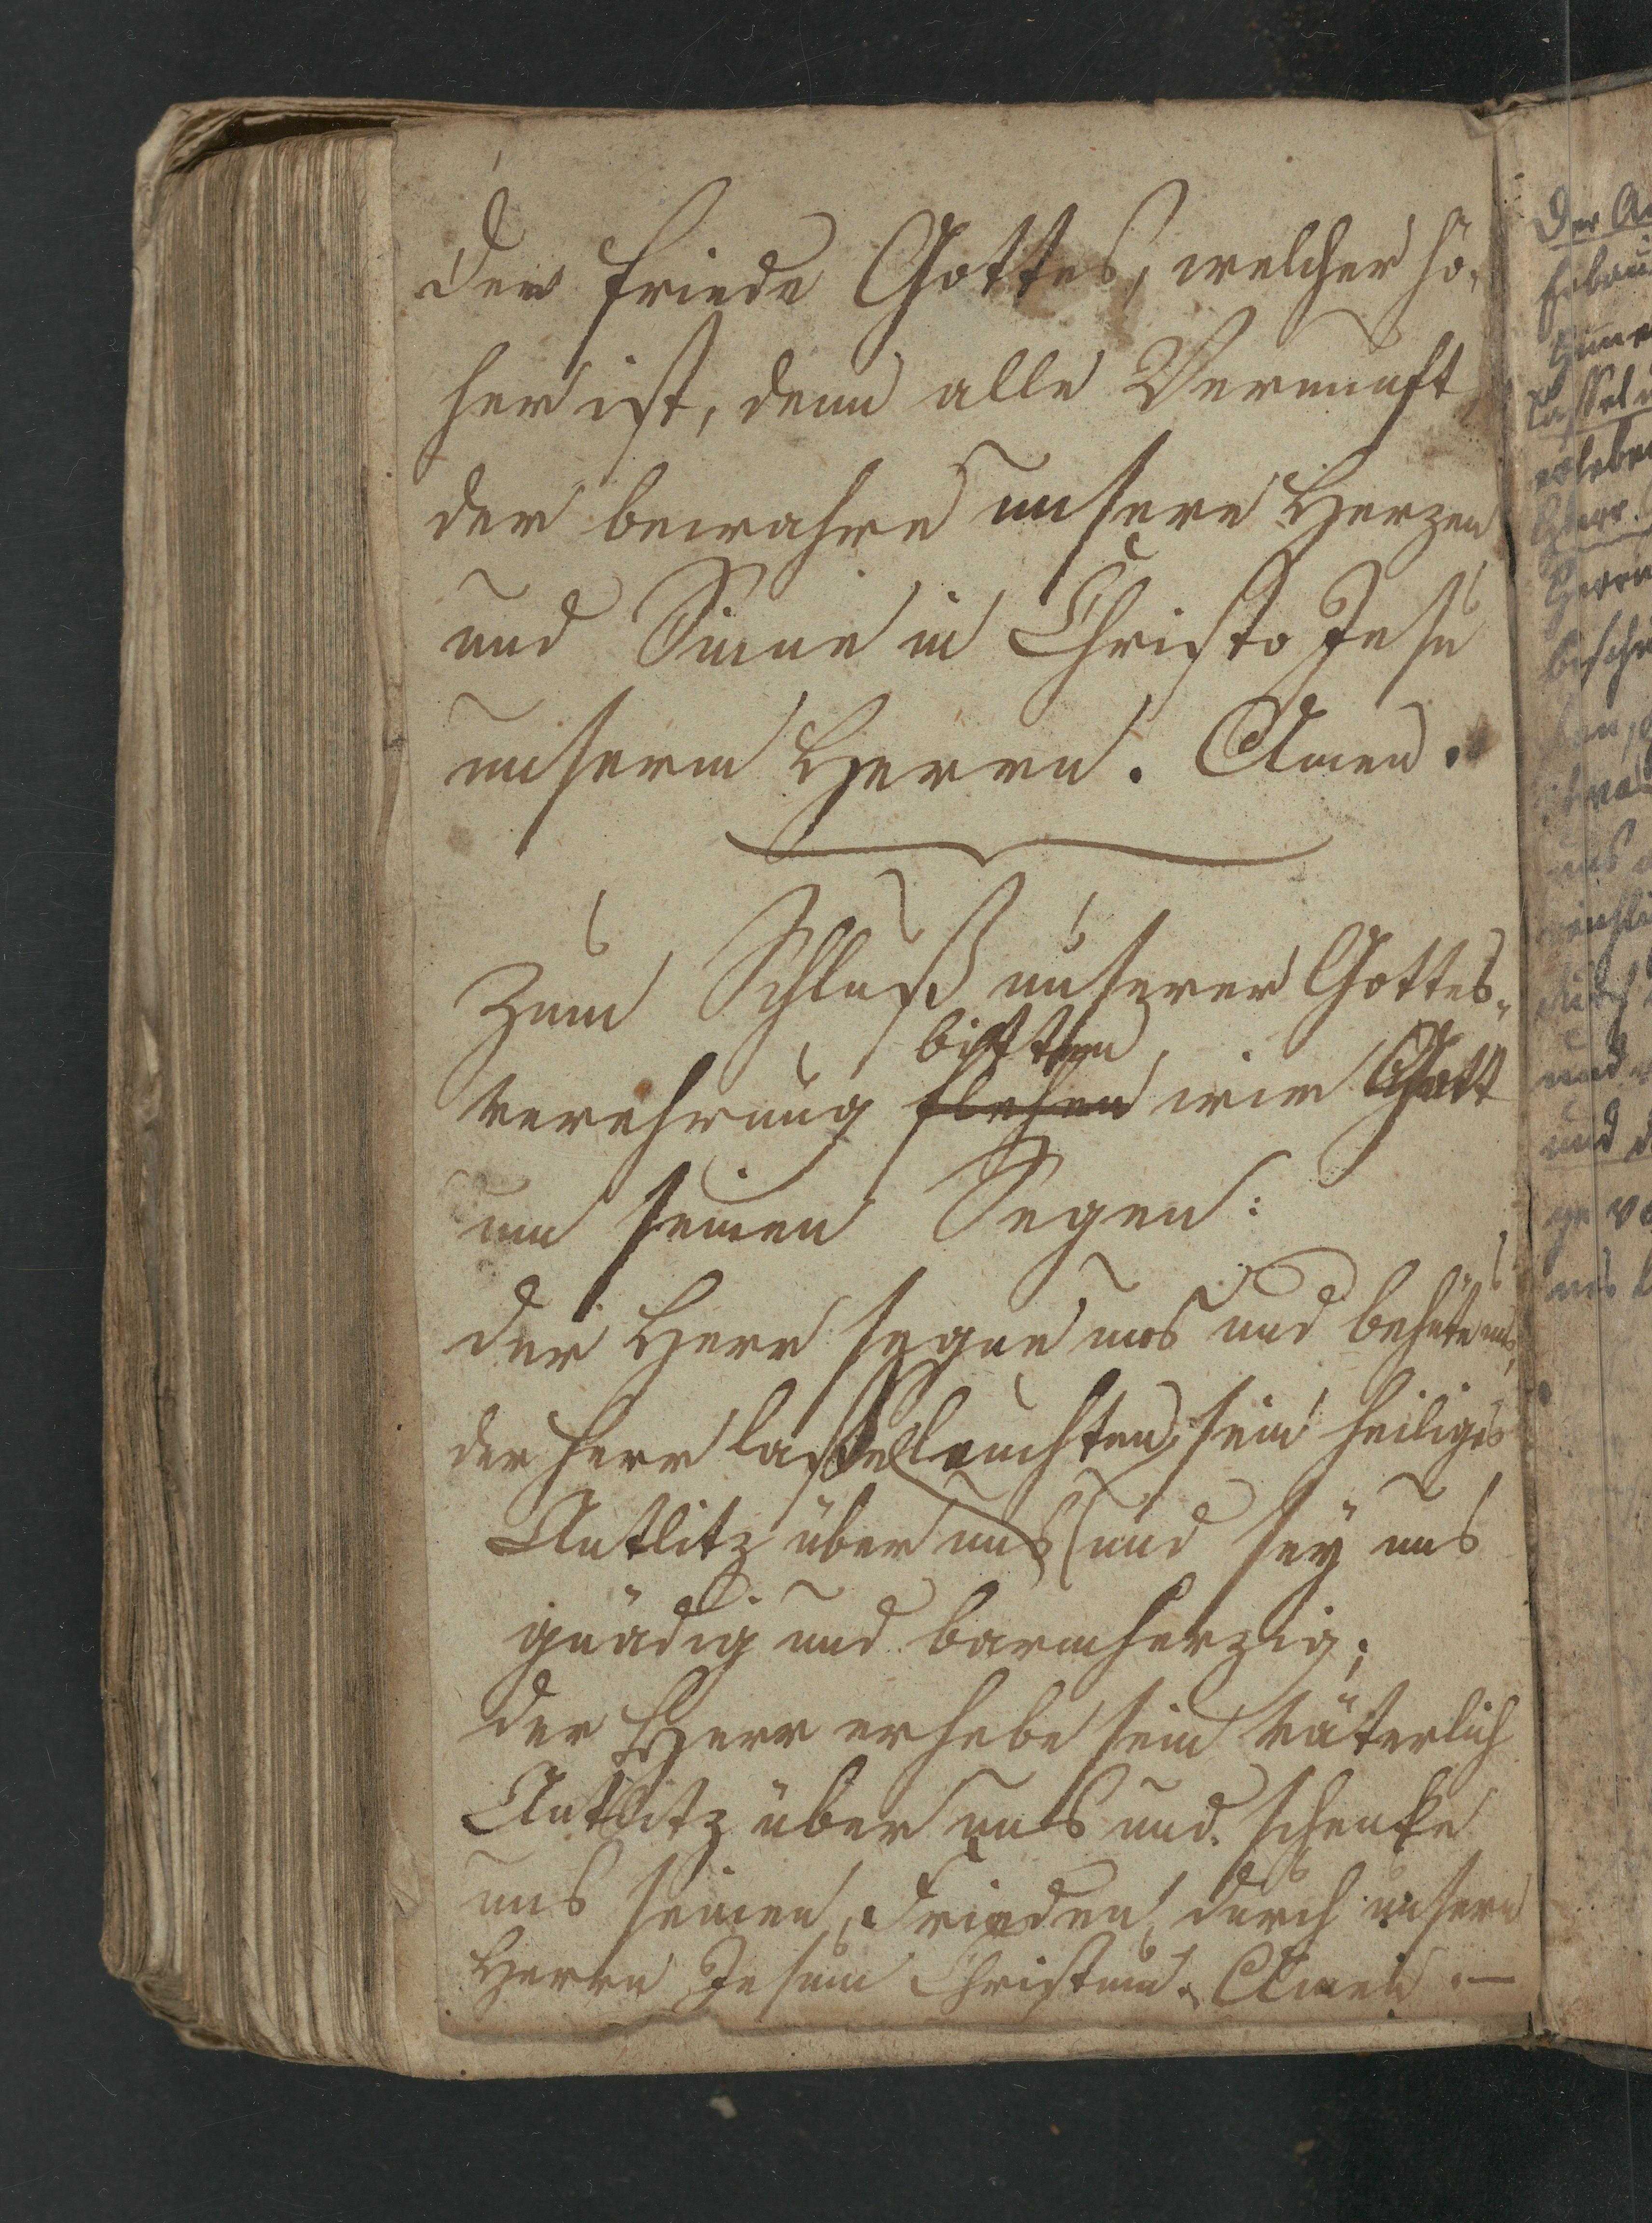 Der Friede Gottes, welcher hö-
her ist, denn alle Vernunft,
der bewahre unsere Herzen
und Sinne in Christo Jesu
unserm Herrn. Amen.
Zum Schluß unserer Gottes-
bitten
verehrung flehen wir Gott
um seinen Segen:
Der Herr segne uns und behüte uns,
der Herr lasse leuchten sein heiliges
Antlitz über uns und sey uns
gnädig und barmherzig;
der Herr erhebe sein väterlich
Antlitz über uns und schenke
uns seinen Frieden durch unsern
Herrn Jesum Christum. Amen. —
Der
und
und
uns